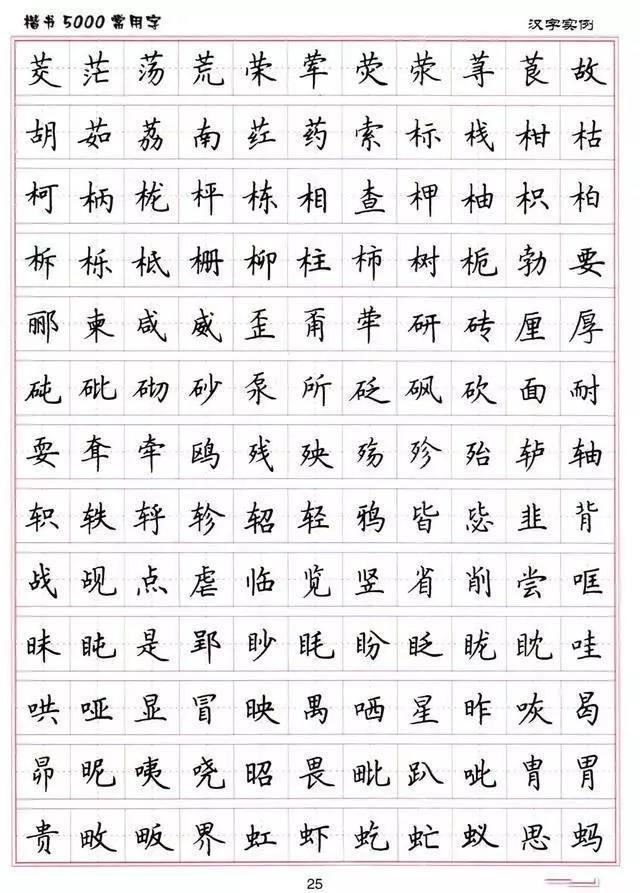 楷书5000常用字 汉字实例
茭茫荡荒荣荤荧荥荨茛故
胡茹荔南荭药索标栈柑枯
柯柄栊枰栋相查柙柚枳柏
柝栎柢栅柳柱柿树栀勃要
郦柬咸威歪甭荜研砖厘厚
砘砒砌砂泵所砭砜砍面耐
耍耷牵鸥残殃殇殄殆轳轴
轵轶轷轸轺轻鸦皆毖韭背
战觇点虐临览竖省削尝哐
昧盹是郢眇眊盼眨昽眈哇
哄哑显冒映禺哂星昨咴曷
昴昵咦哓昭畏毗趴呲胄胃
贵畋畈界虹虾虼虻蚁思蚂
25